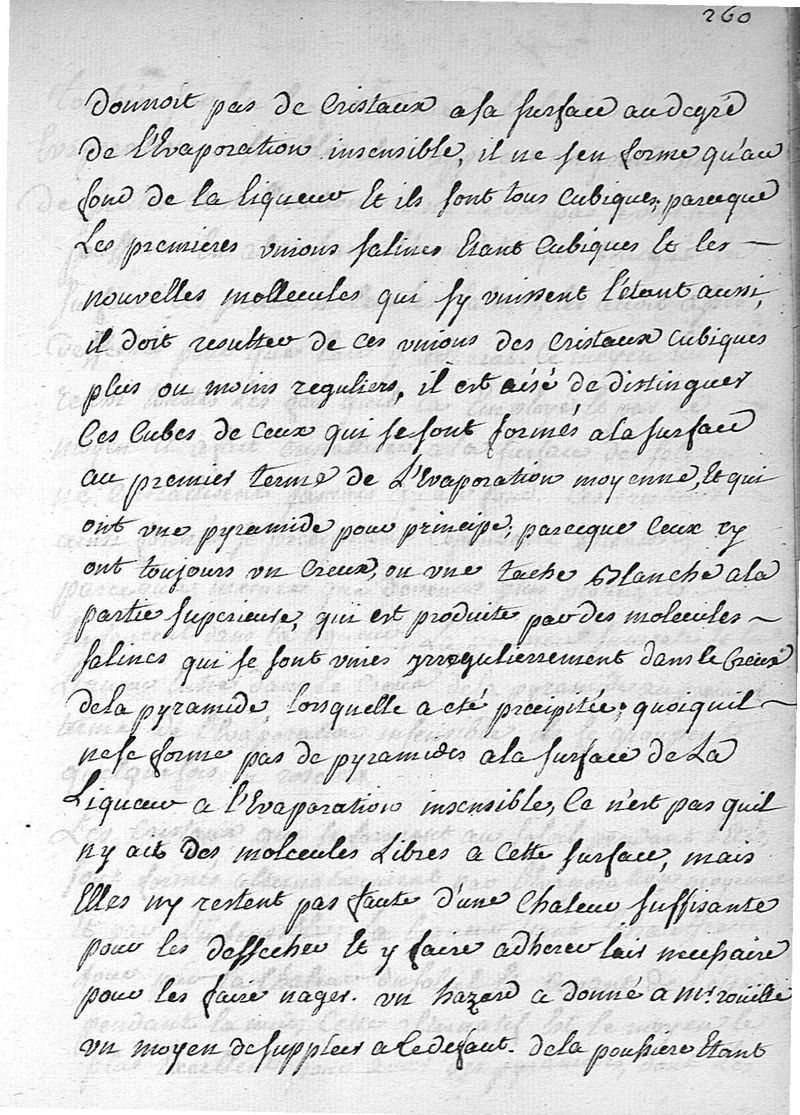 260
donnoit pas de Cristaux a la surface au degré
de l'Evaporation insensible, il ne s'en forme qu'au
fond de la liqueur Et ils sont tous Cubiques, parceque
Les premieres vnions salines Etant Cubiques Et les
nouvelles mollecules qui s'y vnissent l'étant aussi,
il doit resulter de ces vnions des Cristaux Cubiques
plus ou moins reguliers, il est aisé de distinguer
Ces Cubes de Ceux qui se sont formés a la surface
au premier terme de L'Evaporation moyenne, Et qui
ont vne pyramide pour principe; parceque Ceux cy
ont toujours vn Creux, ou vne tache Blanche a la
partie superieure, qui est produite par des molecules
salines qui se sont vnies yrregulierement dans le Creux
de la pyramide lorsquelle a eté precipitée; quoiquil
ne se forme pas de pyramides a la surface de La
Liqueur a l'Evaporation insensible, Ce n'est pas quil
n'y ait des molecules Libres a Cette surface, mais
Elles n'y restent pas faute d'une Chaleur suffisante
pour les dessecher Et y faire adherer lair necessaire
pour les faire nager. vn hazard a donné a Mr. roüelle
vn moyen de suppleer a le defaut. de la poussiere Etant